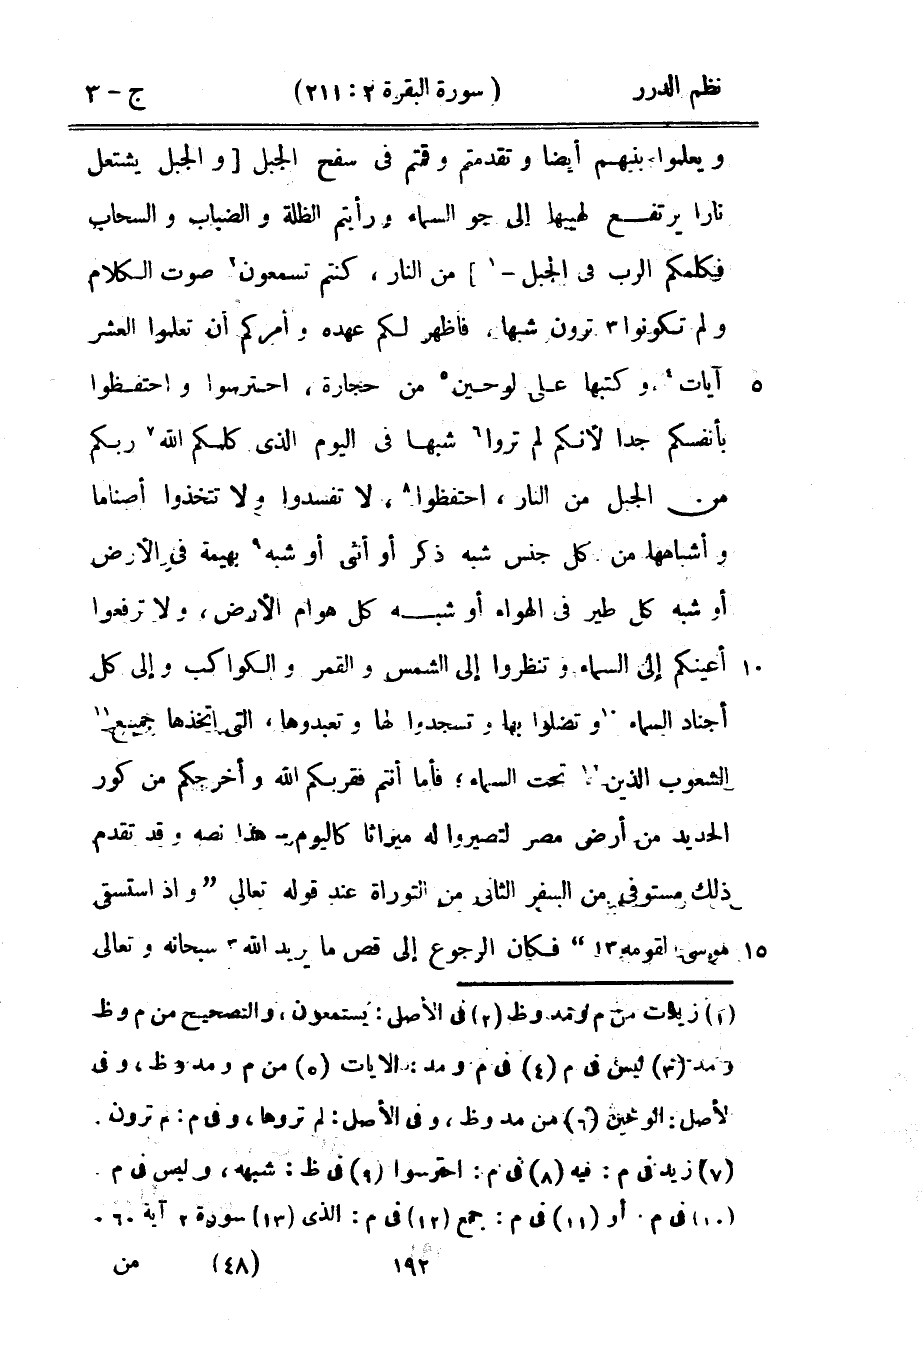 نظم الدرر ( سورة البقرة ٢ : ٢١١ ) ج - ٣
و يعلموا بنيهم أيضا و تقدمتم و قمتم فى سفح الجبل [ و الجبل يشتعل
نارا يرتفع لهيبها إلى جو السماء و رأيتم الظلة و الضباب و السحاب
فيكلمكم الرب فى الجبل - ١ ] من النار ، كنتم تسمعون ٢ صوت الكلام
و لم تكونوا ٣ ترون شبها ، فأظهر لكم عهده و أمركم أن تعلموا العشر
٥ آيات ٤ ، و كتبها على لوحين ٥ من حجارة ، احترسوا و احتفظوا
بأنفسكم جدا لأنكم لم تروا ٦ شبها فى اليوم الذى كلمكم الله ٧ ربكم
من الجبل من النار ، احتفظوا ٨ ، لا تفسدوا و لا تتخذوا أصناما
و أشباهها من كل جنس شبه ذكر أو أنثى أو شبه ٩ بهيمة فى الأرض
أو شبه كل طير فى الهواء أو شبه كل هوام الأرض ، و لا ترفعوا
١٠ أعينكم إلى السماء و تنظروا إلى الشمس و القمر و الكواكب و إلى كل
أجناد السماء ١٠ و تضلوا بها و تسجدوا لها و تعبدوها ، التى اتخذها جميع ١١
الشعوب الذين ١٢ تحت السماء ؛ فأما أنتم فقربكم الله و أخرجكم من كور
الحديد من أرض مصر لتصيروا له ميراثا كاليوم - هذا نصه و قد تقدم
ذلك مستوفى من السفر الثانى من التوراة عند قوله تعالى " و اذ استسقى
١٥ موسى لقومه ١٣ " فكان الرجوع إلى قص ما يريد الله ٣ سبحانه و تعالى
(١) زيدت من م و مد و ظ (٢) فى الأصل : يستمعون ، و التصحيح من م و ظ
و مد (٣) ليس فى م (٤) فى م و مد : الايات (٥) من م و مد و ظ ، و فى
الأصل : الوحين (٦) من مد و ظ ، و فى الأصل : لم تروها ، و فى م : م ترون .
(٧) زيد فى م : فيه (٨) فى م : احترسوا (٩) فى ظ : شبهه ، و ليس فى م .
(١٠) فى م : أو (١١) فى م : جمع (١٢) فى م : الذى (١٣) سورة ٢ آية ٦٠ .
١٩٢ (٤٨) من